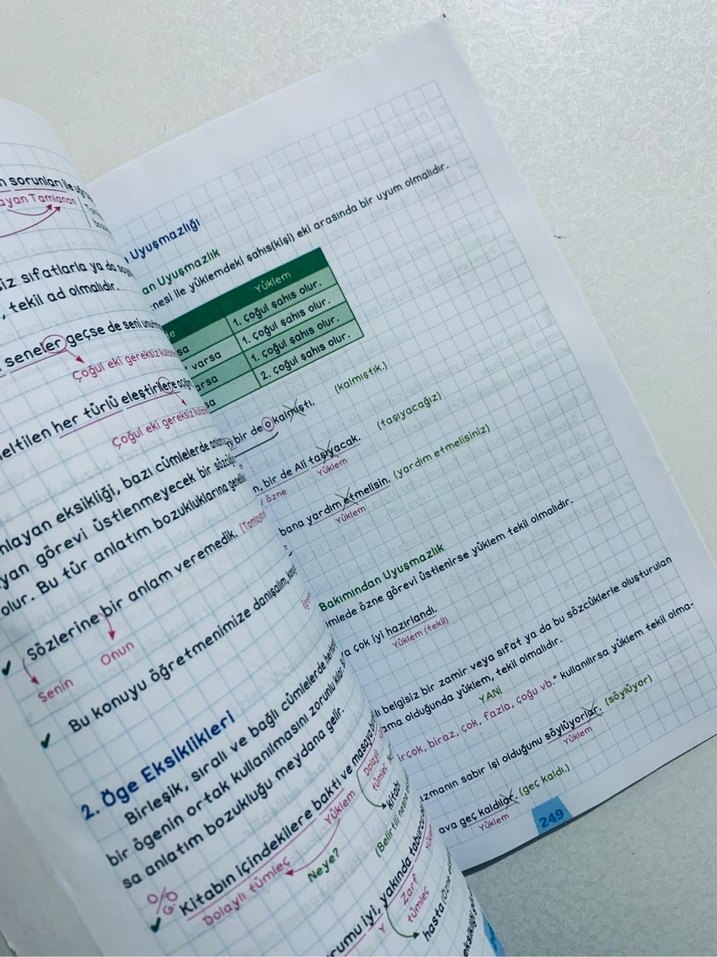 n sorunları ile
ayan Tamlanan
iz sıfatlarla ya da
, tekil ad olmalıdır.
seneler geçse de seni
Çoğul eki gereksiz
eltilen her türlü eleştirilere
Çoğul eki gereksiz
mlayan eksikliği, bazı cümlelerde
yan görevi üstlenmeyecek bir
olur. Bu tür anlatım bozukluklarına
✓ Sözlerine bir anlam veremedik.
Senin Onun
✓ Bu konuyu öğretmenimize danışalım,
2. Öge Eksiklikleri
Birleşik, sıralı ve bağlı cümlelerde
bir ögenin ortak kullanılmasını zorunlu
sa anlatım bozukluğu meydana gelir.
Ö/Ö
G.Ö
✓ Kitabın içindekilere baktı ve masaya
Dolaylı tümleç Yüklem Dolaylı tümleç
Neye?
kitabı
(Belirtili nesne
rumu iyi, yakında taburcu
Y Zarf tümleç
hasta
Uyuşmazlığı
an Uyuşmazlık
nesi ile yüklemdeki şahıs(kişi) eki arasında bir uyum olmalıdır.
Yüklem
sa 1. çoğul şahıs olur.
varsa 1. çoğul şahıs olur.
arsa 1. çoğul şahıs olur.
sa 2. çoğul şahıs olur.
bir de o kalmıştı. (kalmıştık.)
n, bir de Ali taşıyacak. (taşıyacağız)
özne Yüklem
bana yardım etmelisin. (yardım etmelisiniz)
Yüklem
Bakımından Uyuşmazlık
mlede özne görevi üstlenirse yüklem tekil olmalıdır.
a çok iyi hazırlandı.
Yüklem (tekil)
lı belgisiz bir zamir veya sıfat ya da bu sözcüklerle oluşturulan
ama olduğunda yüklem, tekil olmalıdır.
YANİ
irçok, biraz, çok, fazla, çoğu vb." kullanılırsa yüklem tekil olma-
ızmanın sabır işi olduğunu söylüyorlar. (söylüyor)
Yüklem
ava geç kaldılar. (geç kaldı.)
Yüklem
249